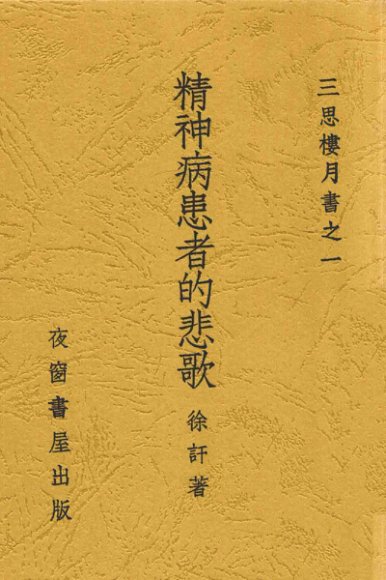 三思樓月書之一
精神病患者的悲歌
徐訏著
夜窗書屋出版